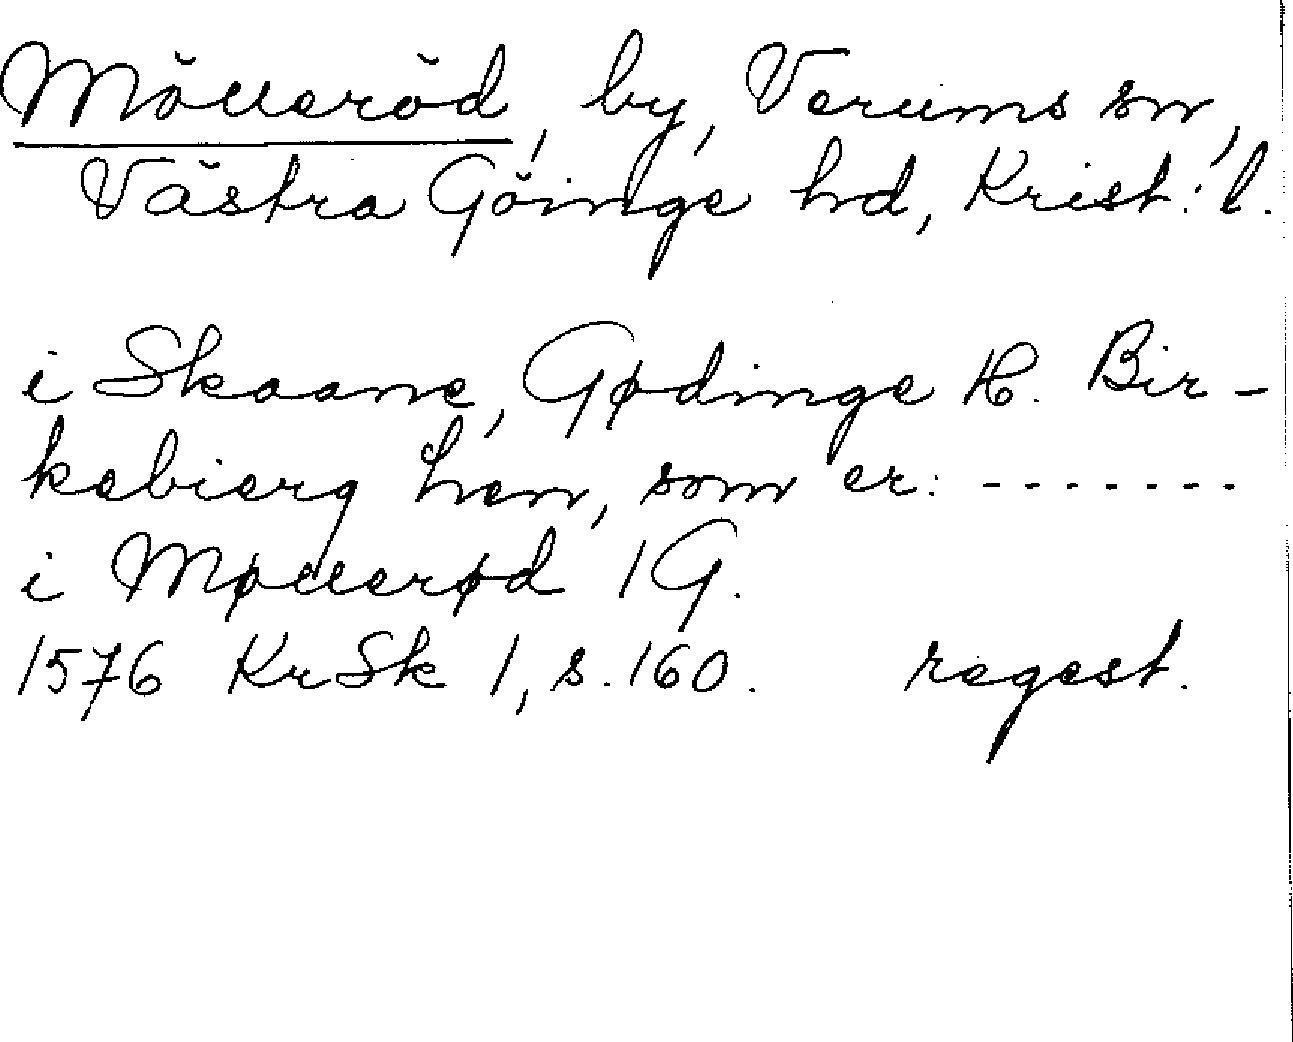 Mölleröd, by, Verums sn,
Västra Göinge hd, Krist. l.
i Skaane, Gødinge H. Bir-
kebierg Len, som er: -------
i Møllerød 1 G.
1576 KrSk 1, s. 160. regest.